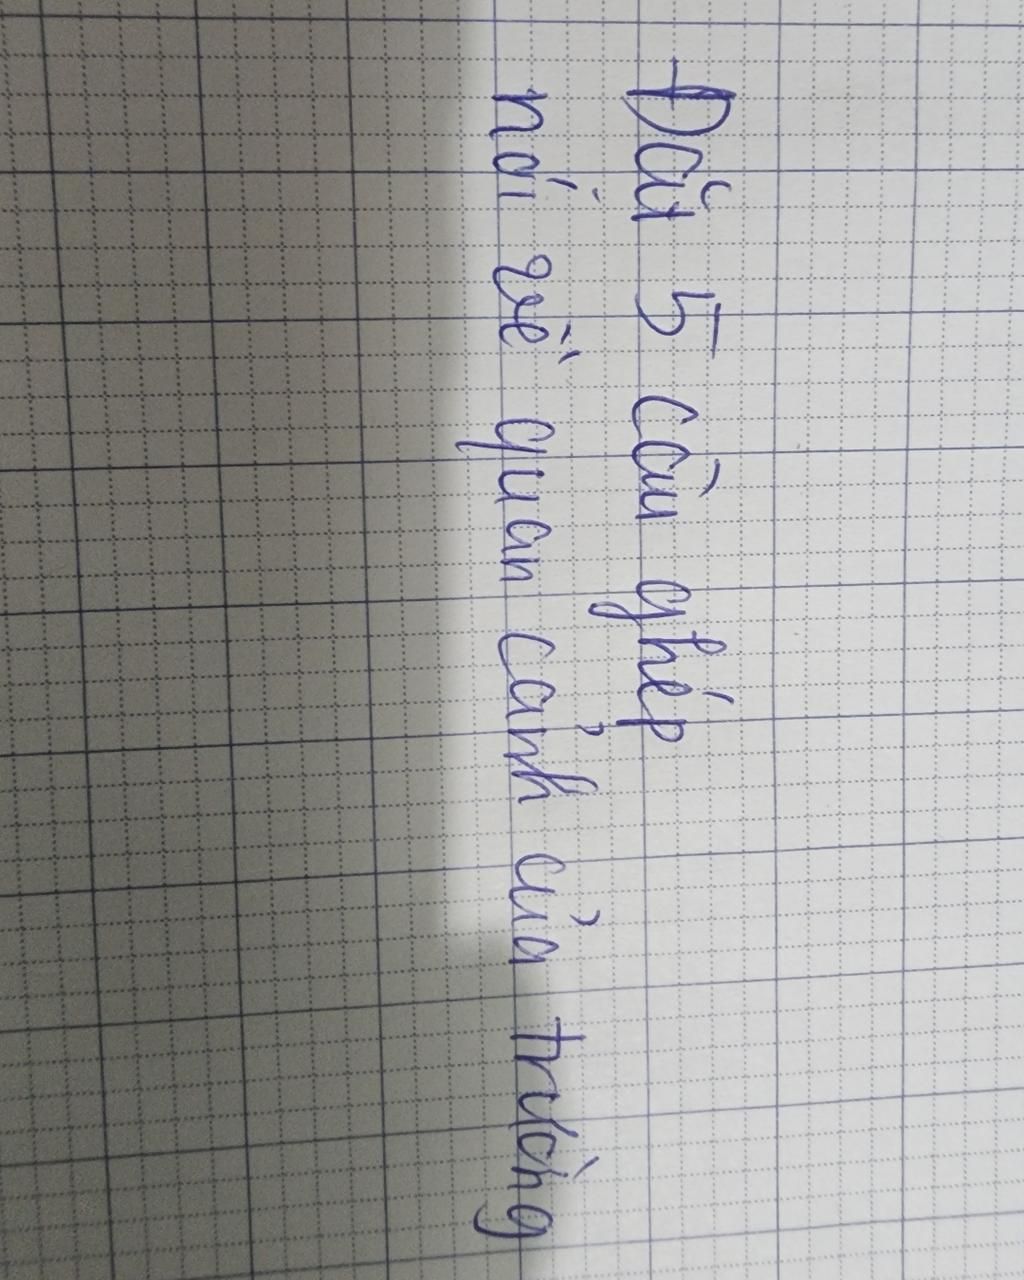 Đặt 5 câu ghép
nói về quan cảnh của trường